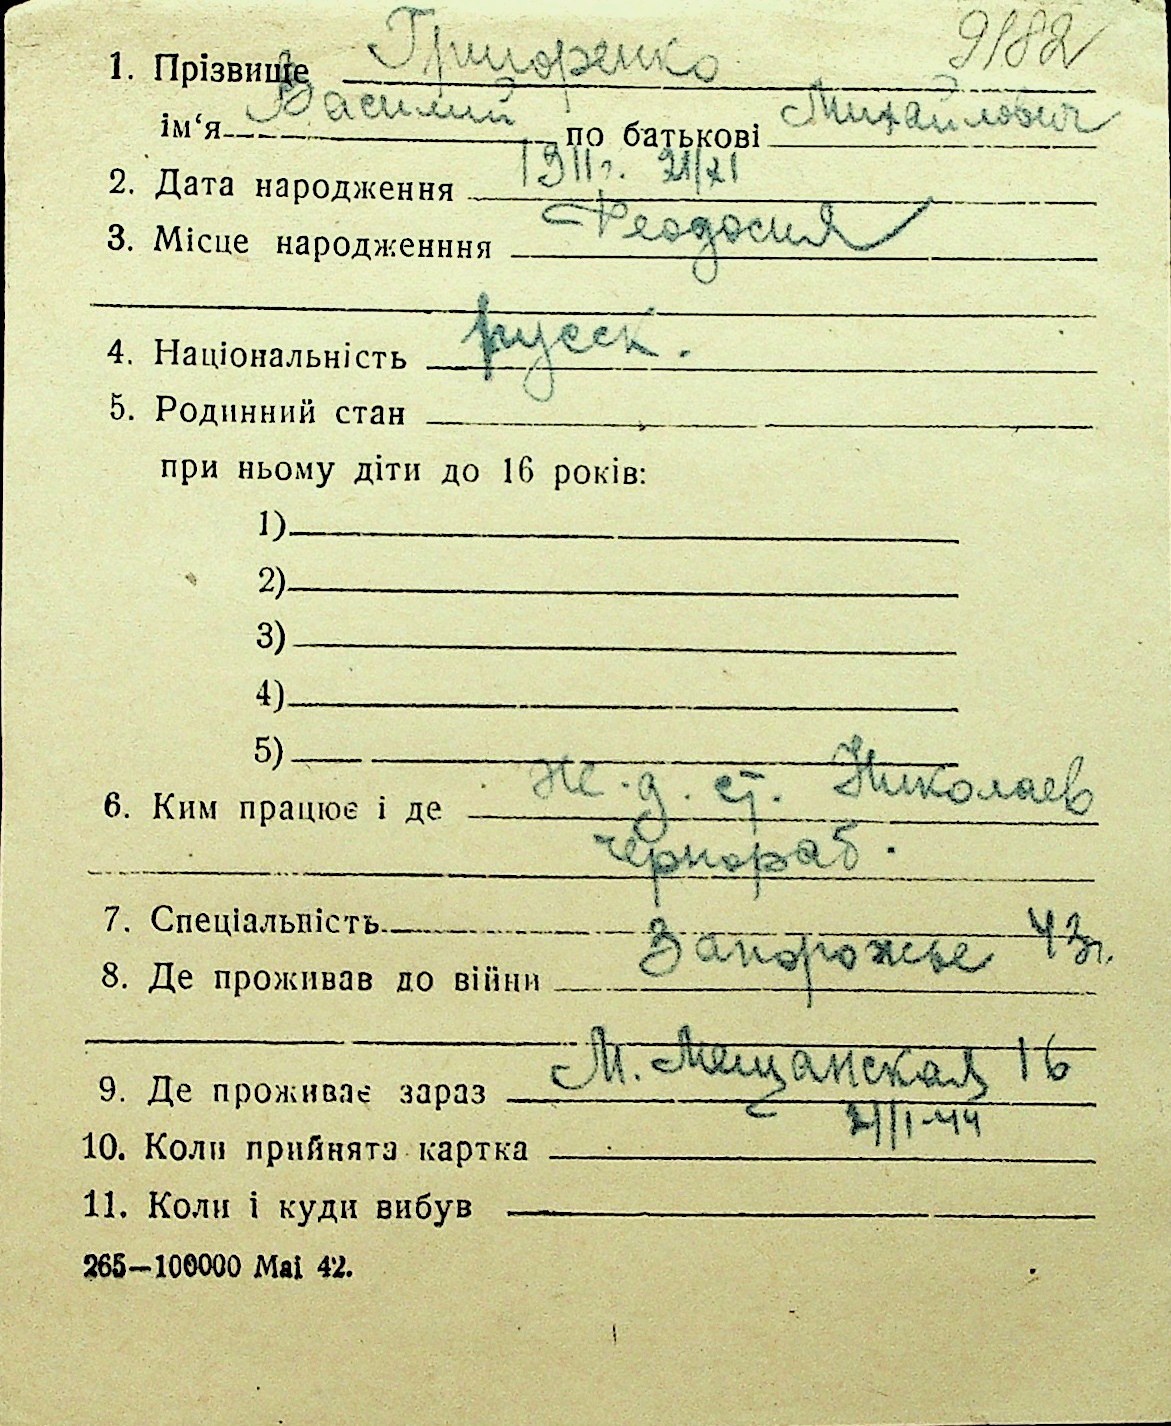 9182
1. Прізвище Григоренко
ім‘я Василий по батькові Михайлович
2. Дата народження 1911г.
3. Місце народженння Феодосия
4. Національність русск.
5. Родинний стан
при ньому діти до 16 років:
1)
2)
3)
4)
5)
6. Ким працює і де же.д. ст. Николаев
чернораб.
7. Спеціальність
8. Де проживав до війни Запорожье 43г.
9. Де проживає зараз М. Мещанская 16
10. Коли прийнята картка 21/I-44
11. Коли і куди вибув
265—100000 Mai 42.